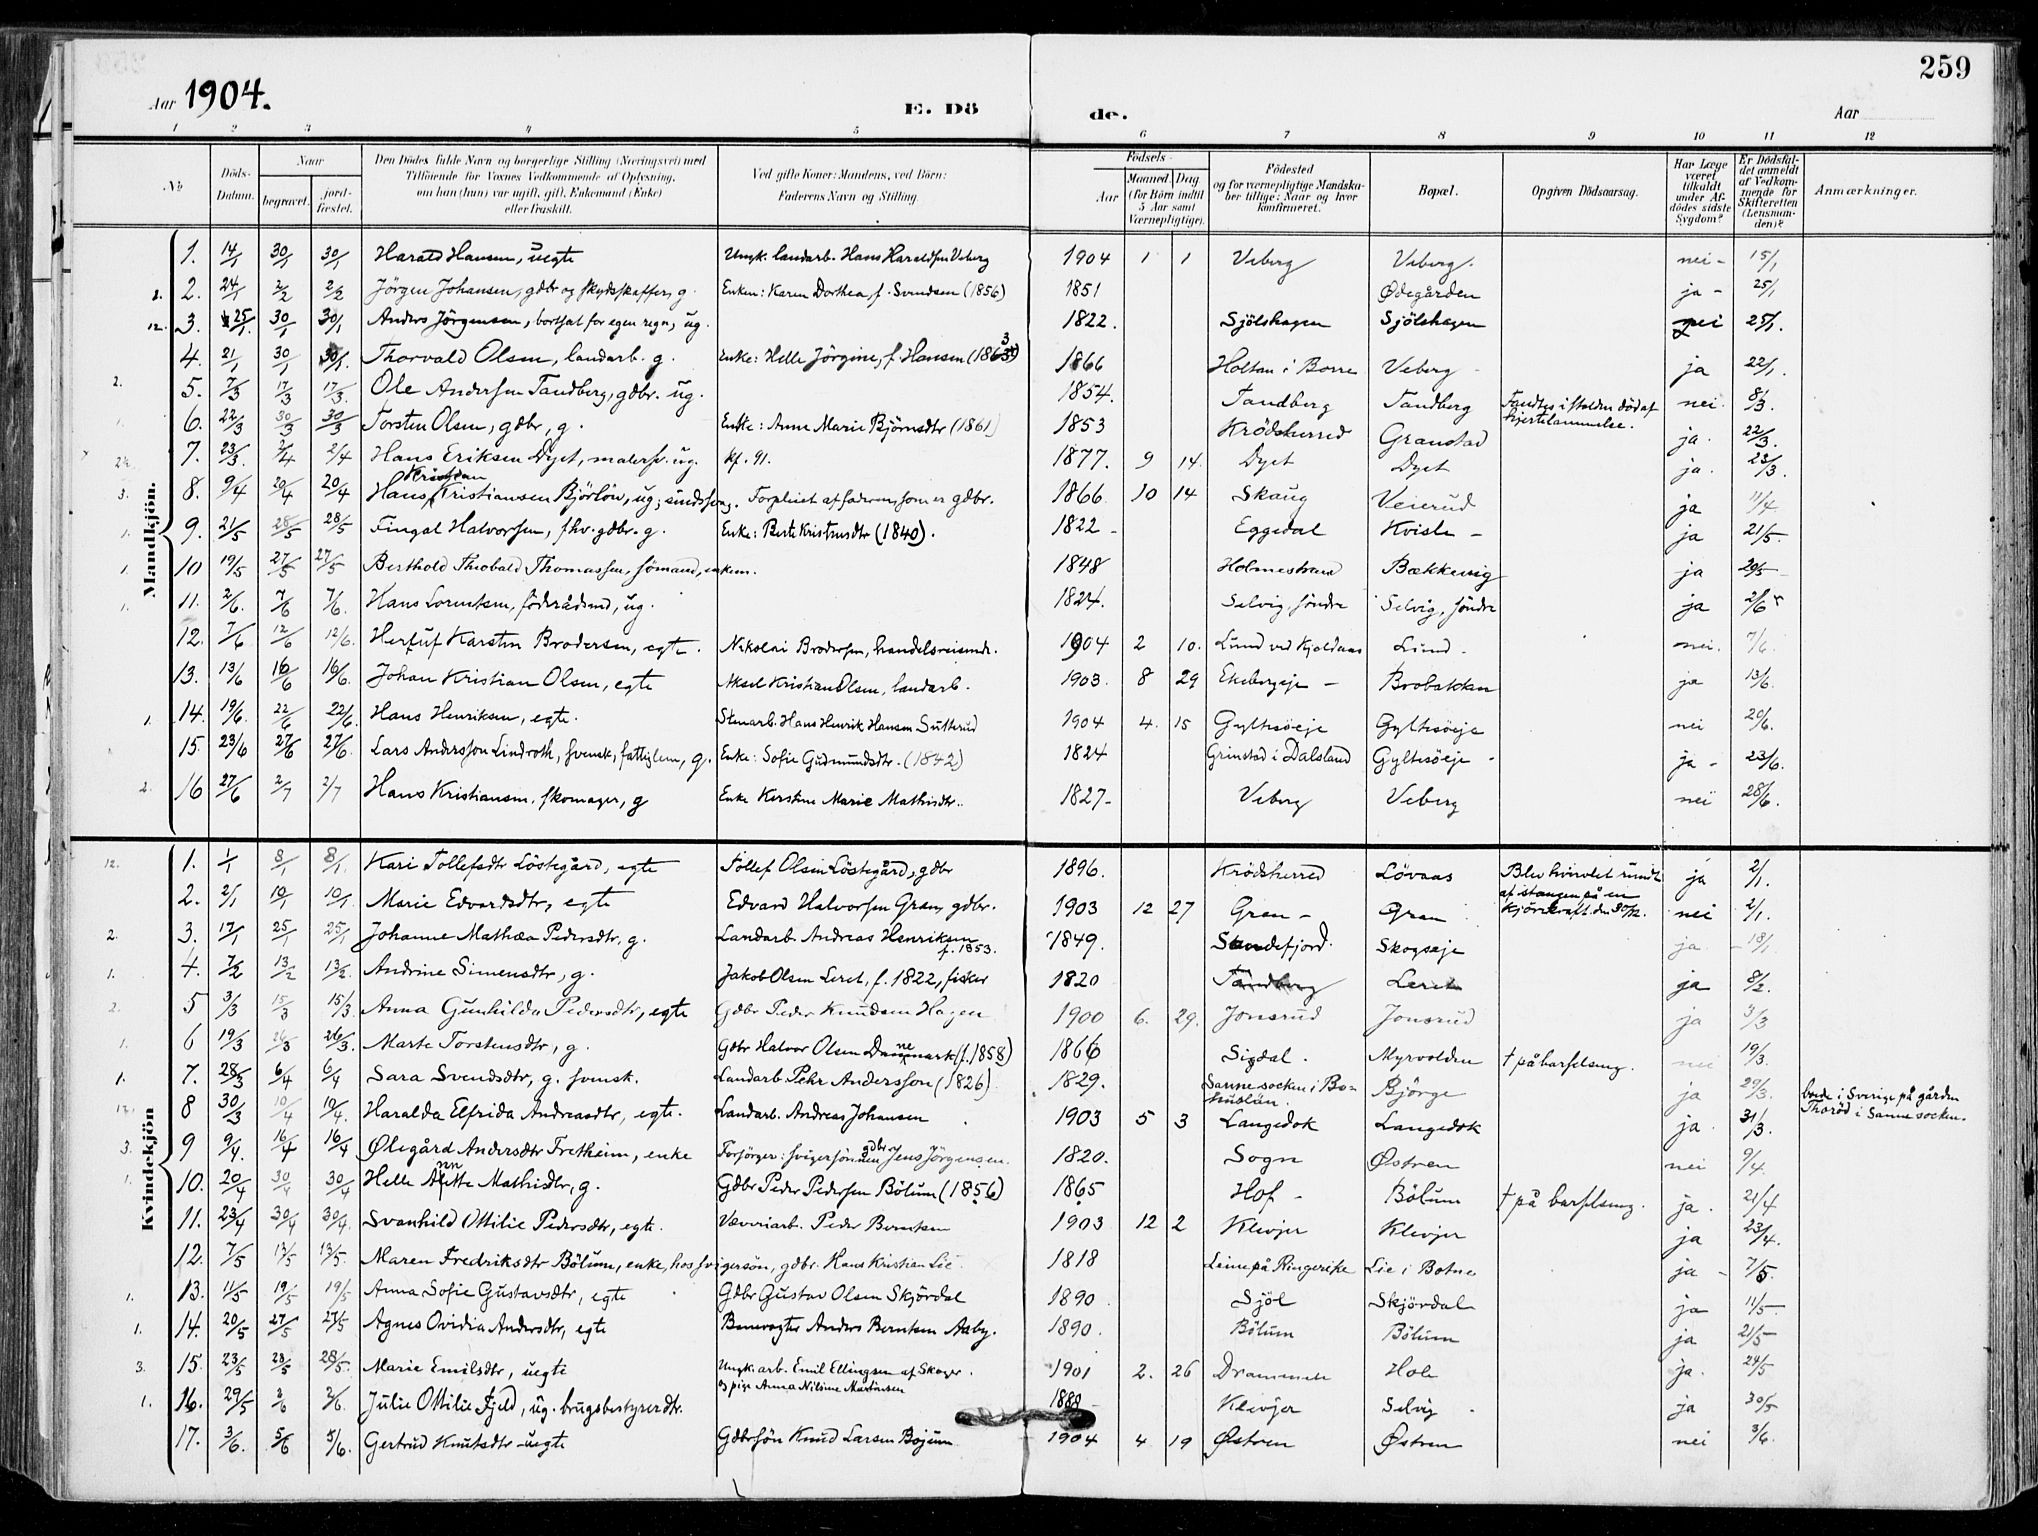 259
Aar 1904.
E. Dö de.
Aar
1 2 3 4 5 6 7 8 9 10 11 12
№
Döds-Datum.
Naar
begravet.
jord-fæstet.
Den Dödes fulde Navn og borgerlige Stilling (Næringsvei) med
Tilföiende for Voxnes Vedkommende af Oplysning,
om han (hun) var ugift, gift, Enkemand (Enke)
eller fraskilt.
Ved gifte Koner: Mandens, ved Börn:
Faderens Navn og Stilling.
Födsels-
Aar
Maaned. Dag.
(for Börn indtil 5 Aar samt Værnepligtige).
Födested
og for værnepligtige Mandska-
ber tillige: Naar og hvor
konfirmeret.
Bopæl.
Opgiven Dödsaarsag.
Har Læge været tilkaldt under Af-dödes sidste Sygdom?
Er Dödsfal-det anmeldt af Vedkom-mende for Skifteretten (Lensman-den)?
Anmærkninger.
Mandkjön.
1. 14/1 30/1 30/1 Harald Hansen, uegte Ungk. landarb. Hans Haraldsen Veberg 1904 1 1 Veberg Veberg. nei - 15/1
2. 24/1 2/2 2/2 Jörgen Johansen, gdbr og skydsskaffer, g. Enken: Karen Dorthea, f. Svendsen (1856) 1851 Ødegården ja - 25/1
12. 3. 25/1 30/1 30/1 Anders Jörgensen, bortsat for egen regn, ug. 1822. Sjölshagen Sjölshagen nei 25/1.
4. 21/1 30/1 30/1. Thorvald Olsen, landarb. g. Enke: Helle Jörgine, f. Hansen (1863) 1866 Holtan i Borre Veberg ja 22/1.
2. 5. 7/3 17/3 17/3. Ole Andersen Tandberg, gdbr. ug. 1854. Tandberg Tandberg Fandtes i stalden död af hjertelammelse. nei. 8/3.
6. 22/3 30/3 30/3 Torsten Olsen, gdbr, g. Enke: Anne Marie Björnsdtr (1861) 1853 Krödsherred Granstad ja. 22/3.
7. 23/3. 2/4 2/4 Hans Eriksen Dyet, malersv. ug. kf. 91. 1877. 9 14. Dyet Dyet ja. 23/3.
3. 8. 9/4 20/4 20/4 Hans Kristian Kristiansen Björlöw, ug; sindssvag. Forpleiet af faderen, som er gdbr. 1866 10 14 Skaug Veierud ja 11/4
1. 9. 21/5 28/5 28/5 Fingal Halvorsen, fhv. gdbr. g. Enke: Berte Kristensdtr (1840). 1822 - Eggedal Kvisle - ja 21/5.
1. 10 19/5 27/5 27/5 Berthold Theobald Thomassen, sömand, enkem. 1848 Holmestrand Bækkevig ja 20/5
1. 11. 2/6. 7/6 7/6. Hans Lorentsen, föderådsmd, ug. 1824. Selvig, söndre Selvig, söndre ja 2/6
12. 7/6 12/6 12/6. Herluf Karsten Brodersen, egte. Nikolai Brodersen, handelsreisende. 1904 2 10. Lund ved Kjeldaas Lund. nei. 7/6.
13. 13/6 16/6 16/6. Johan Kristian Olsen, egte Aksel Kristian Olsen, landarb. 1903. 8 29 Ekebergeje - Brobakken ja 13/6.
1. 14. 19/6. 22/6 22/6. Hans Henriksen, egte. Stenarb. Hans Henrik Hansen Sutterud 1904 4. 15 Gyltesöeje Gyltesöeje nei 20/6.
15. 23/6 27/6 27/6. Lars Andersson Lindroth, svensk, fattiglem, g. Enke: Sofie Gudmundsdtr. (1842) 1824 Grinstad i Dalsland Gyltesöeje - ja - 23/6.
2. 16 27/6 2/7 2/7 Hans Kristiansen, skomager, g Enke Kerstine Marie Mathisdtr.. 1827- Veberg Veberg nei 28/6.
Kvindekjön
12. 1. 1/1 8/1 8/1. Kari Tollefsdtr Löstegård, egte Tollef Olsen Löstegård, gdbr 1896. Krödsherred Lövaas Blev hvirvlet rundt af stangen på en kjörekraft den 30/12. ja 2/1.
2. 2/1 10/1 10/1. Marie Edvardsdtr, egte Edvard Halvorsen Gran, gdbr. 1903 12 27 Gran - Gran nei 2/1.
2. 3. 17/1 25/1 25/1 Johanne Mathea Pedersdtr, g. Landarb. Andreas Henriksen f. 1853. 1849. Sandefjord. Skogseje ja - 18/1
1. 4. 7/2 13/2 13/2. Andrine Simensdtr, g. Jakob Olsen Leret, f. 1822, fisker 1820 Tandberg Leret ja 8/2.
2. 5 3/3 15/3 15/3 Anna Gunhilda Pedersdtr, egte Gdbr Peder Knudsen Hagen 1900 6. 29. Jonsrud Jonsrud ja 3/3
1. 6 19/3 26/3 26/3. Marte Torstensdtr, g. Gdbr Halvor Olsen Dannemark (f. 1858) 1866 Sigdal. Myrvolden † på barselseng. nei 19/3.
1. 7. 28/3 6/4 6/4 Sara Svendsdtr, g. svensk. Landarb. Pehr Andersson (1826) 1829. Sanne socken i Bohuslän. Björge ja 29/3. boede i Sverige på gården Thoröd i Sanne socken.
12. 8 30/3 10/4 10/4. Haralda Elfrida Andreasdtr, egte. Landarb. Andreas Johansen 1903 5 3 Langedok Langedok ja. 31/3.
3. 9 9/4. 16/4 16/4 Ølegård Andersdtr Fretheim, enke Forsörger: svigersönnen gdbr Jens Jörgensen. 1820. Sogn Østren nei 9/4.
1. 10. 20/4 30/4 30/4 Helle Annette Mathisdtr, g. Gdbr Peder Pedersen Bölum (1856) 1865 Hof - Bölum † på barselseng. ja. 21/4
11. 23/4 30/4 30/4. Svanhild Ottilie Pedersdtr, egte. Væveriarb. Peder Berntsen 1903 12 2 Klevjer Klevjer ja 23/4.
12. 7/5 13/5 13/5. Maren Fredriksdtr Bölum, enke, hos svigersön, gdbr. Hans Kristian Lie. 1818 Leine på Ringerike Lie i Botne ja - 7/5.
1. 13. 11/5 19/5 19/5 Anna Sofie Gustavsdtr, egte Gdbr Gustav Olsen Skjördal 1890 Sjöl Skjördal ja 11/5-
1. 14. 20/5 27/5 27/5 Agnes Ovidia Andersdtr, egte Banevogter Anders Berntsen Aaby. 1890. Bölum Bölum ja 21/5-
3. 15. 23/5 28/5 28/5. Marie Emilsdtr, uegte Ungk. arb. Emil Ellingsen af Skoger. og pige Anna Nilsine Martinsen 1901 2. 26 Drammen Hole ja. 24/5
1. 16. 29/5 2/6 2/6. Julie Ottilie Fjeld, ug. brugsbestyrerdtr. Klevjer Selvig ja 30/5
17. 3/6. 5/6 5/6. Gertrud Knutsdtr uegte Gdbrsön Knud Larsen Bojum 1904 4 19 Østren Østren nei 3/6.